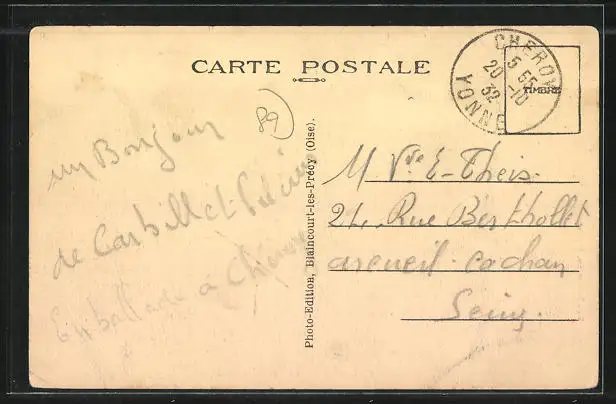 CARTE POSTALE
CHEROY
5 55
20 -10
32
YONNE
TIMBRE
89
un Bonjour
de Carbillet
en ballade à Chéroy
Photo-Edition, Blaincourt-les-Précy (Oise).
M Vve E. Theis
24 Rue Berthollet
arcueil-cachan
Seine